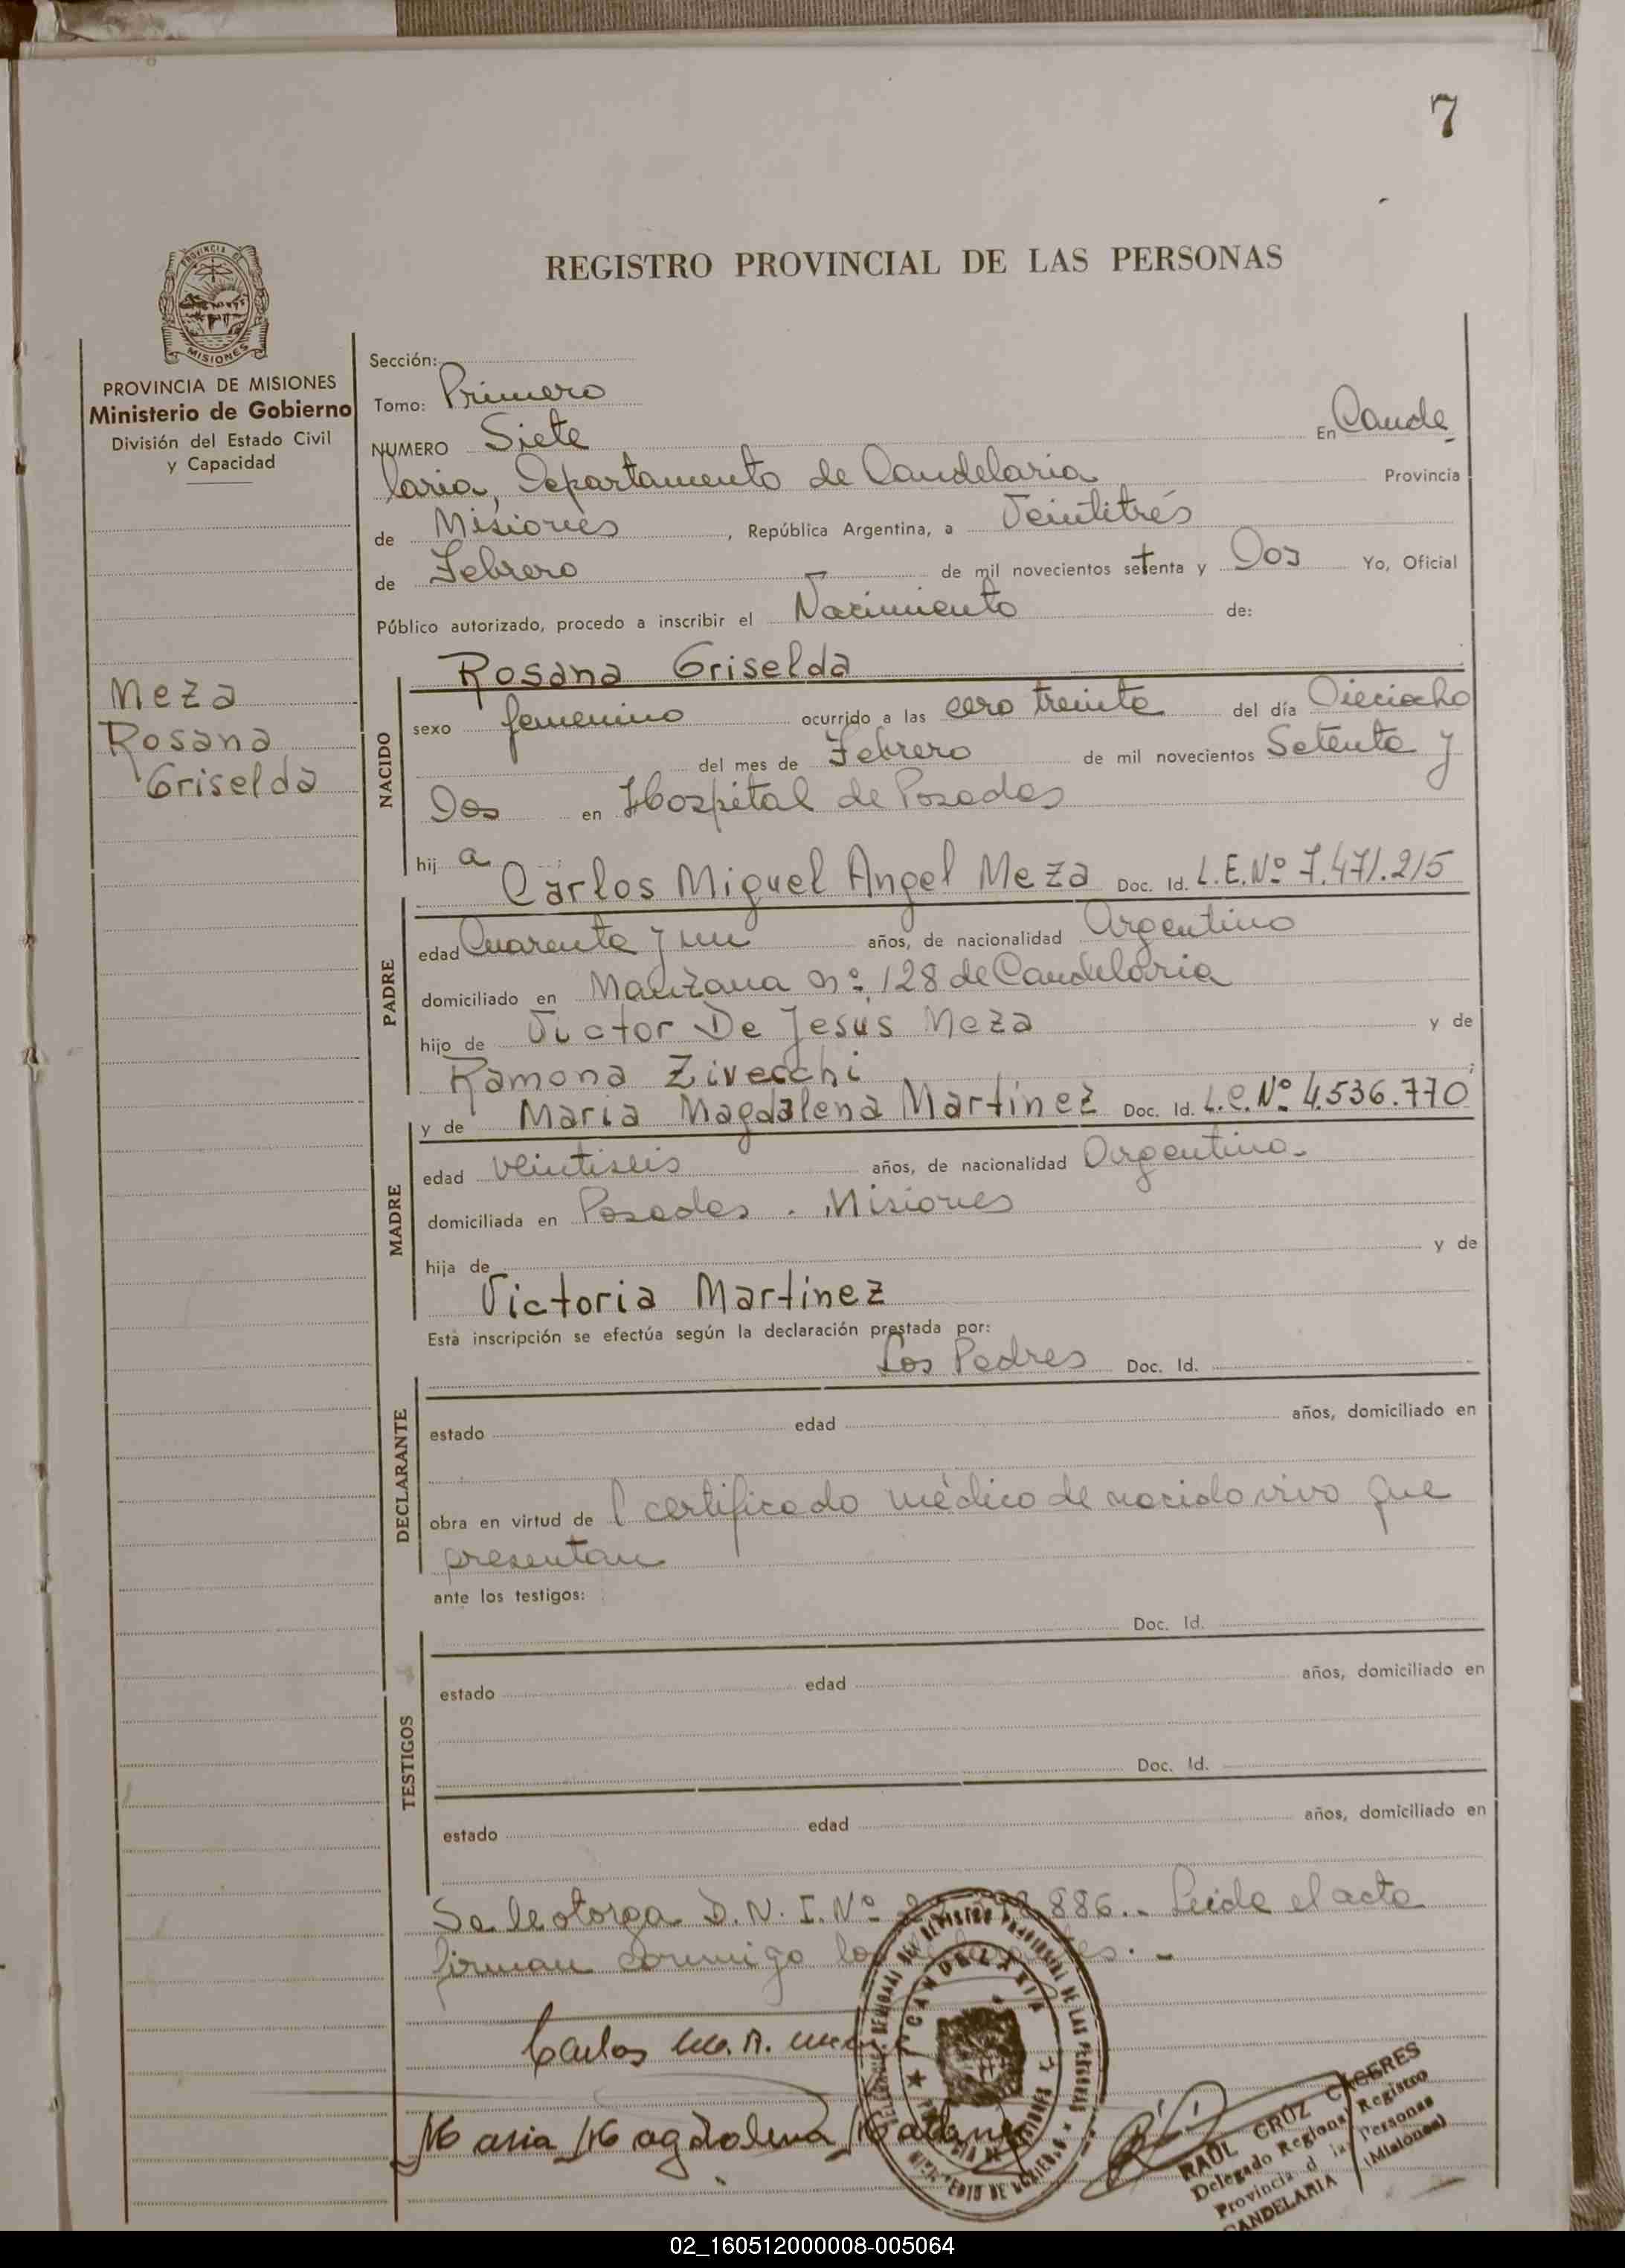 7
PROVINCIA DE
MISIONES
REGISTRO PROVINCIAL DE LAS PERSONAS
PROVINCIA DE MISIONES
Ministerio de Gobierno
División del Estado Civil
y Capacidad
Meza
Rosana
Griselda
Sección:
Tomo: Primero
NUMERO Siete En Cande
laria, Departamento de Candelaria Provincia
de Misiones, República Argentina, a Veintitrés
de Febrero de mil novecientos setenta y Dos Yo, Oficial
Público autorizado, procedo a inscribir el Nacimiento de:
NACIDO
Rosana Griselda
sexo femenino ocurrido a las cero treinta del día Dieciocho
del mes de Febrero de mil novecientos Setenta y
Dos en Hospital de Posadas
hij a
PADRE
Carlos Miguel Angel Meza Doc. Id. L.E.Nº 7.471.215
edad Cuarenta y un años, de nacionalidad Argentino
domiciliado en Manzana nº 128 de Candelaria
hijo de Victor De Jesús Meza y de
Ramona Zivecchi
MADRE
y de Maria Magdalena Martinez Doc. Id. L.C.Nº 4.536.770
edad veintiseis años, de nacionalidad Argentina.
domiciliada en Posadas. Misiones
hija de y de
Victoria Martinez
Esta inscripción se efectúa según la declaración prestada por:
DECLARANTE
Los Padres Doc. Id.
estado edad años, domiciliado en
obra en virtud de l certificado médico de nacido vivo que
presentan
ante los testigos:
TESTIGOS
Doc. Id.
estado edad años, domiciliado en
Doc. Id.
estado edad años, domiciliado en
Se le otorga D.N.I.Nº 886.- Leida el acta
firman conmigo los
Carlos M. A.
Maria Magdalena
CANDELARIA
RAÚL CRUZ CACERES
Delegado Regional Registro
Provincia d las Personas
CANDELARIA (Misiones)
02_160512000008-005064